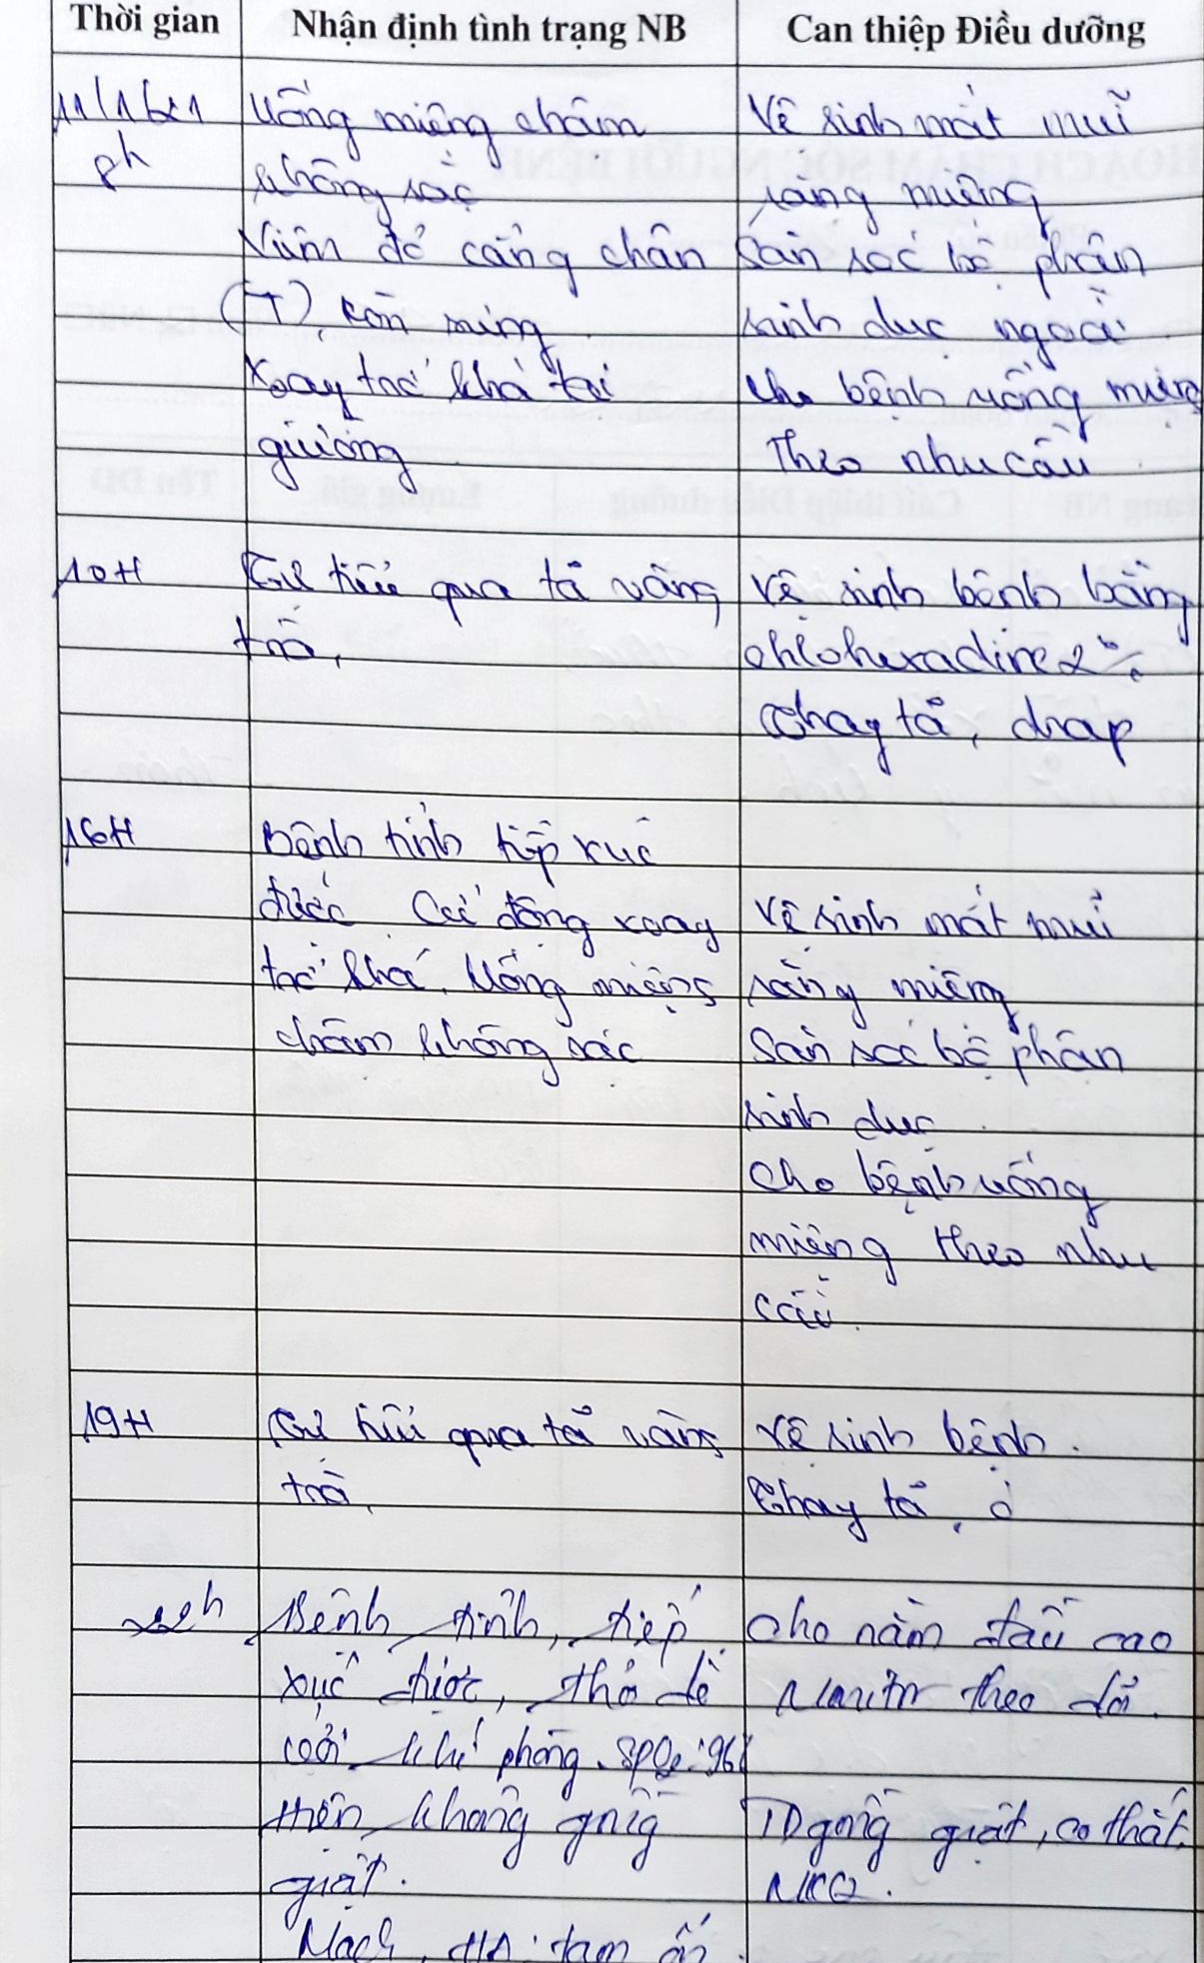 Thời gian
Nhận định tình trạng NB
Can thiệp Điều dưỡng
8h
Uống miệng chậm
không sặc
Viêm đỏ cẳng chân
(T), còn sưng
Xoay trở khá tại
giường
Vệ sinh mắt mũi
răng miệng
Săn sóc bộ phận
sinh dục ngoài
Cho bệnh uống miệng
theo nhu cầu
10H
tiểu qua tã vàng
trà,
Vệ sinh bệnh bằng
chlohexadine 2%
Thay tã, drap
16H
Bệnh tỉnh tiếp xúc
được Cử động xoay
trở khá. Uống miệng
chậm không sặc
Vệ sinh mắt mũi
răng miệng
Săn sóc bộ phận
sinh dục
Cho bệnh uống
miệng theo nhu
cầu.
19H
tiểu qua tã vàng
trà,
Vệ sinh bệnh.
Thay tã,
Bệnh tỉnh, tiếp
xúc được, thở dễ
khí phòng. SpO2: 96%
không gồng
giật.
Mạch, HA: tạm ổn.
Cho nằm đầu cao
Monitor theo dõi.
TD gồng giật, co thắt